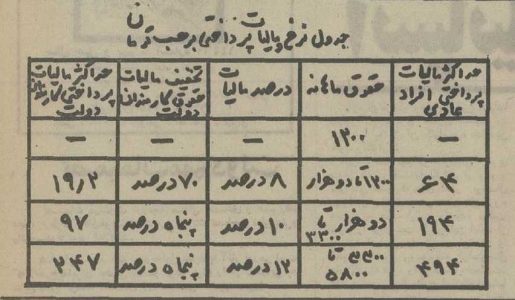 جدول نرخ و مالیات پرداختی برحسب تومان
حداکثر مالیات پرداختی افراد عادی | حقوق ماهانه | درصد مالیات | تخفیف مالیات حقوق کارمندان دولت | حداکثر مالیات پرداختی کارمندان دولت
— | ۱۲۰۰ | — | — | —
۶۴ | ۱۲۰۰ تا دو هزار | ۸ درصد | ۷۰ درصد | ۱۹٫۲
۱۹۴ | دو هزار تا ۳۳۰۰ | ۱۰ درصد | پنجاه درصد | ۹۷
۴۹۴ | ۳۳۰۰ تا ۵۸۰۰ | ۱۲ درصد | پنجاه درصد | ۲۴۷